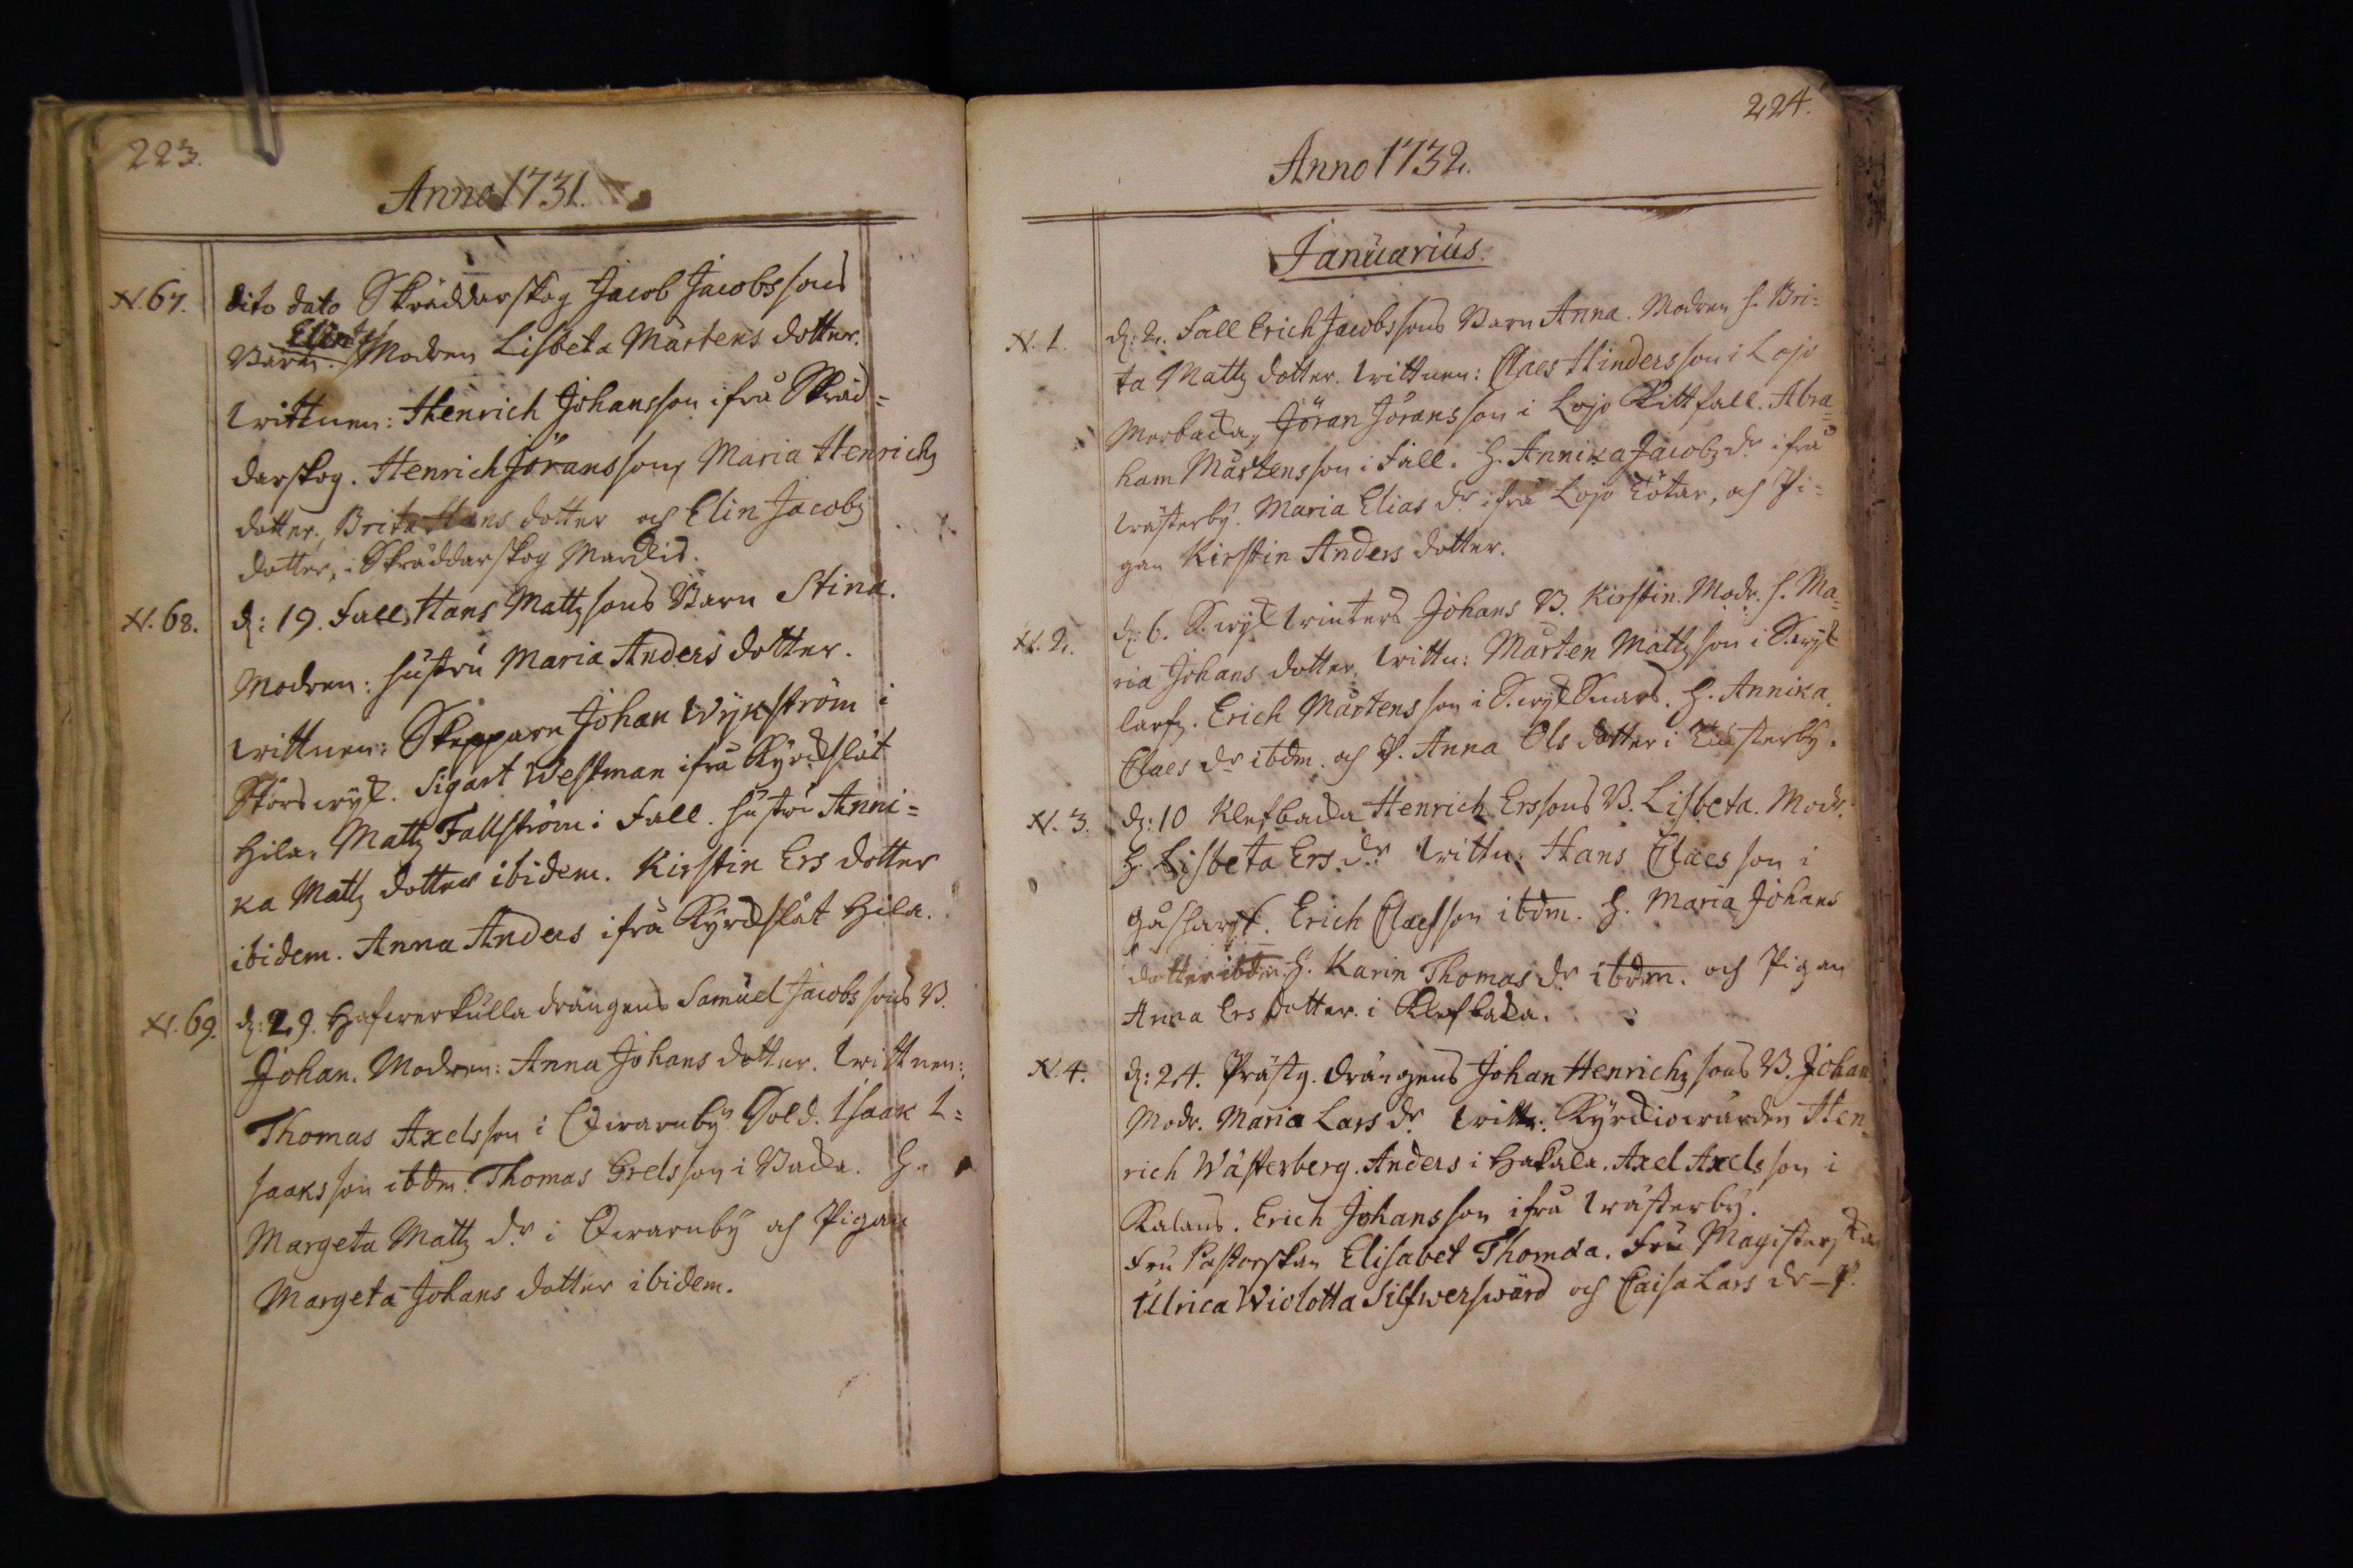 223.
Anno 1731.
N. 67. dito dato Skräddarskog Jacob Jacobssons
Elin
Barn. Modren Lisbeta Mårtens dotter.
Wittnen: Henrich Johansson ifrå Skräd=
darskog. Henrich Jöransson, Maria Henrichz
dotter, Brita Hans dotter och Elin Jacobz
dotter, i Skräddarskog
N. 68. d: 19. Fall, Hans Mattzsons Barn Stina.
Modren: hustru Maria Anders dotter.
Wittnen: Skepparn Johan Wijkström i
Storswijk. Sigart Westman ifrå Kyrckslät
Hila, Mattz Fallström i Fall. hustru Anni=
ka Mattz dotter ibidem. Kirstin Ers dotter
ibidem. Anna Anders ifrå Kyrckslät Hila.
N. 69. d: 29. Hafwerkulla drängens Samuel Jacobssons B.
Johan. Modren: Anna Johans dotter. Wittnen:
Thomas Axelsson i Qwarnby. Sold. Isaak I=
saaksson ibdm. Thomas Grelsson i Backa. H.
Margeta Mattz dr i Qwarnby och Pigan
Margeta Johans dotter ibidem.
224.
Anno 1732.
Januarius.
N. 1. d: 2. Fall Erich Jacobssons Barn Anna. Modren h. Bri=
ta Mattz dotter. Wittnen: Claes Hindersson i Lojo
Morbacka, Jöran Jöransson i Lojo Kittfall. Abra=
ham Mårtensson i Fall. H. Annika Jacobz dr ifrå
Wästerby. Maria Elias dr ifrå Lojo Tötar, och Pi=
gan Kirstin Anders dotter.
N. 2. d: 6. S.wijk Winters Johans B. Kirstin. Modr. h. Ma=
ria Johans dotter. Wittn: Mårten Mattzson i S.wijk
larfz. Erich Mårtensson i S.wijk Snars. H. Annika
Claes dr ibdm. och P. Anna Ols dotter i
N. 3. d: 10 Klefbacka Henrich Erssons B. Lisbeta. Modr.
H. Lisbeta Ers dr Wittn: Hans Claesson i
Gåsharf. Erich Claesson ibdm. H. Maria Johans
dotter ibdm. H. Karin Thomas dr ibdm. och Pigan
Anna Ers dotter i Klefbacka.
N. 4. d: 24. Prästg. drängens Johan Henrichzsons B. Johan
Modr. Maria Lars dr Wittn: Kyrckiowärden Hen=
rich Wästerberg. Anders i Hakala. Axel Axelsson i
Kalans. Erich Johansson ifrå Wästerby.
Fru Pastorskan Elisabet Thomda. Fru Magisterskan
Ulrica Wiolotta Silfwerswärd och Caisa Lars dr - P.